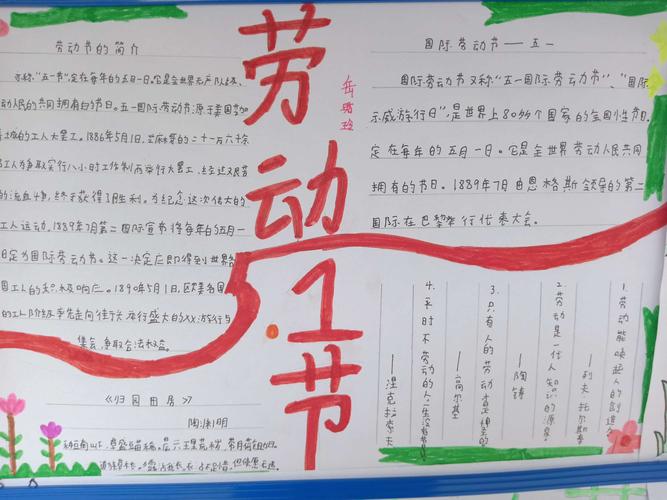 劳动节的简介
亦称"五一节",定在每年的五月一日。它是全世界无产
动人民的共同拥有的节日。五一国际劳动节源于美国芝加
的工人大罢工。1886年5月1日,芝加哥的二十一万六千余
工人为争取实行八小时工作制而举行大罢工,经过
的流血斗争,终于获得了胜利。为纪念这次伟大的
工人运动,1889年7月第二国际宣布将每年的五月一
日定为国际劳动节。这一决定立即得到世界各
国工人的积极响应。1890年5月1日,欧美各国
的工人阶级率先走向街头,举行盛大的示威游行与
集会,争取合法权益。
《归园田居》
陶渊明
劳动
5.1
节
国际劳动节——五一
国际劳动节又称"五一国际劳动节"、"国际
示威游行日",是世界上80多个国家的全国性节日。
定在每年的五月一日。它是全世界劳动人民共同
拥有的节日。1889年7月由恩格斯领导的第二
国际在巴黎举行代表大会。
1.劳动能唤起人的创造力
——列夫·托尔斯泰
2.劳动是一切人知识的源泉
——陶铸
3.只有人的劳动才是神圣的
——高尔基
4.平时不劳动的人
——涅克拉索夫